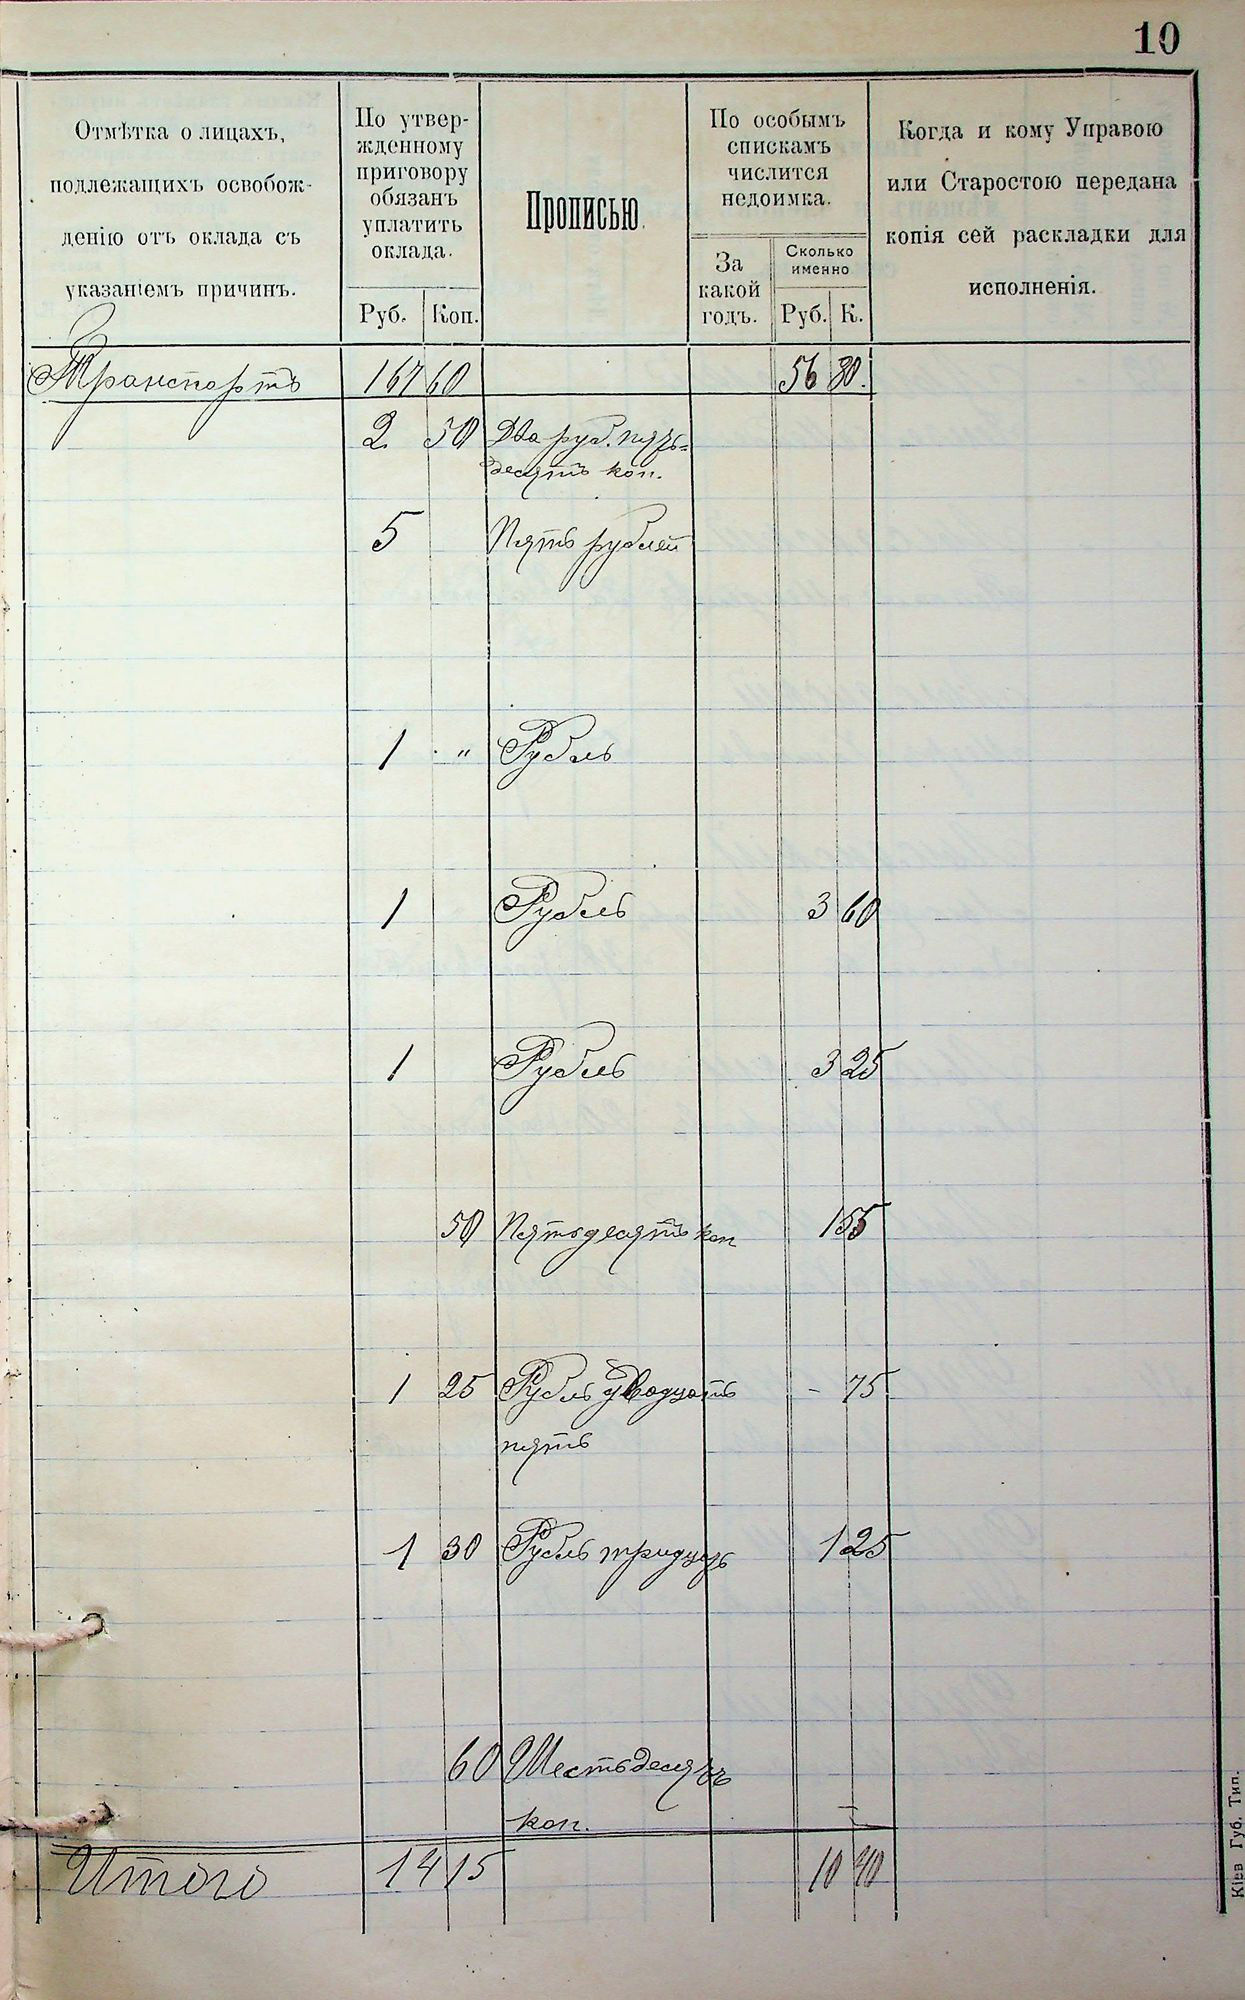 10
Отмѣтка о лицахъ,
подлежащихъ освобож-
денію отъ оклада съ
указаніемъ причинъ.
По утвер-
жденному
приговору
обязанъ
уплатить
оклада.
Руб. Коп.
Прописью.
По особымъ
спискамъ
числится
недоимка.
За
какой
годъ.
Сколько
именно
Руб. К.
Когда и кому Управою
или Старостою передана
копія сей раскладки для
исполненія.
Транспортъ 167 60 56 80.
2 50 Два руб. пять=
десятъ коп.
5 Пять рублей
1 „ Рубль
1 Рубль 3 60
1 Рубль 3 25
50 Пятьдесятъ коп 1 55
1 25 Рубль двадцать - 75
пять
1 30 Рубль тридцать 1 25
60 Шестьдесятъ
коп.
Итого 14 15 10 40
Кіев Губ. Тип.